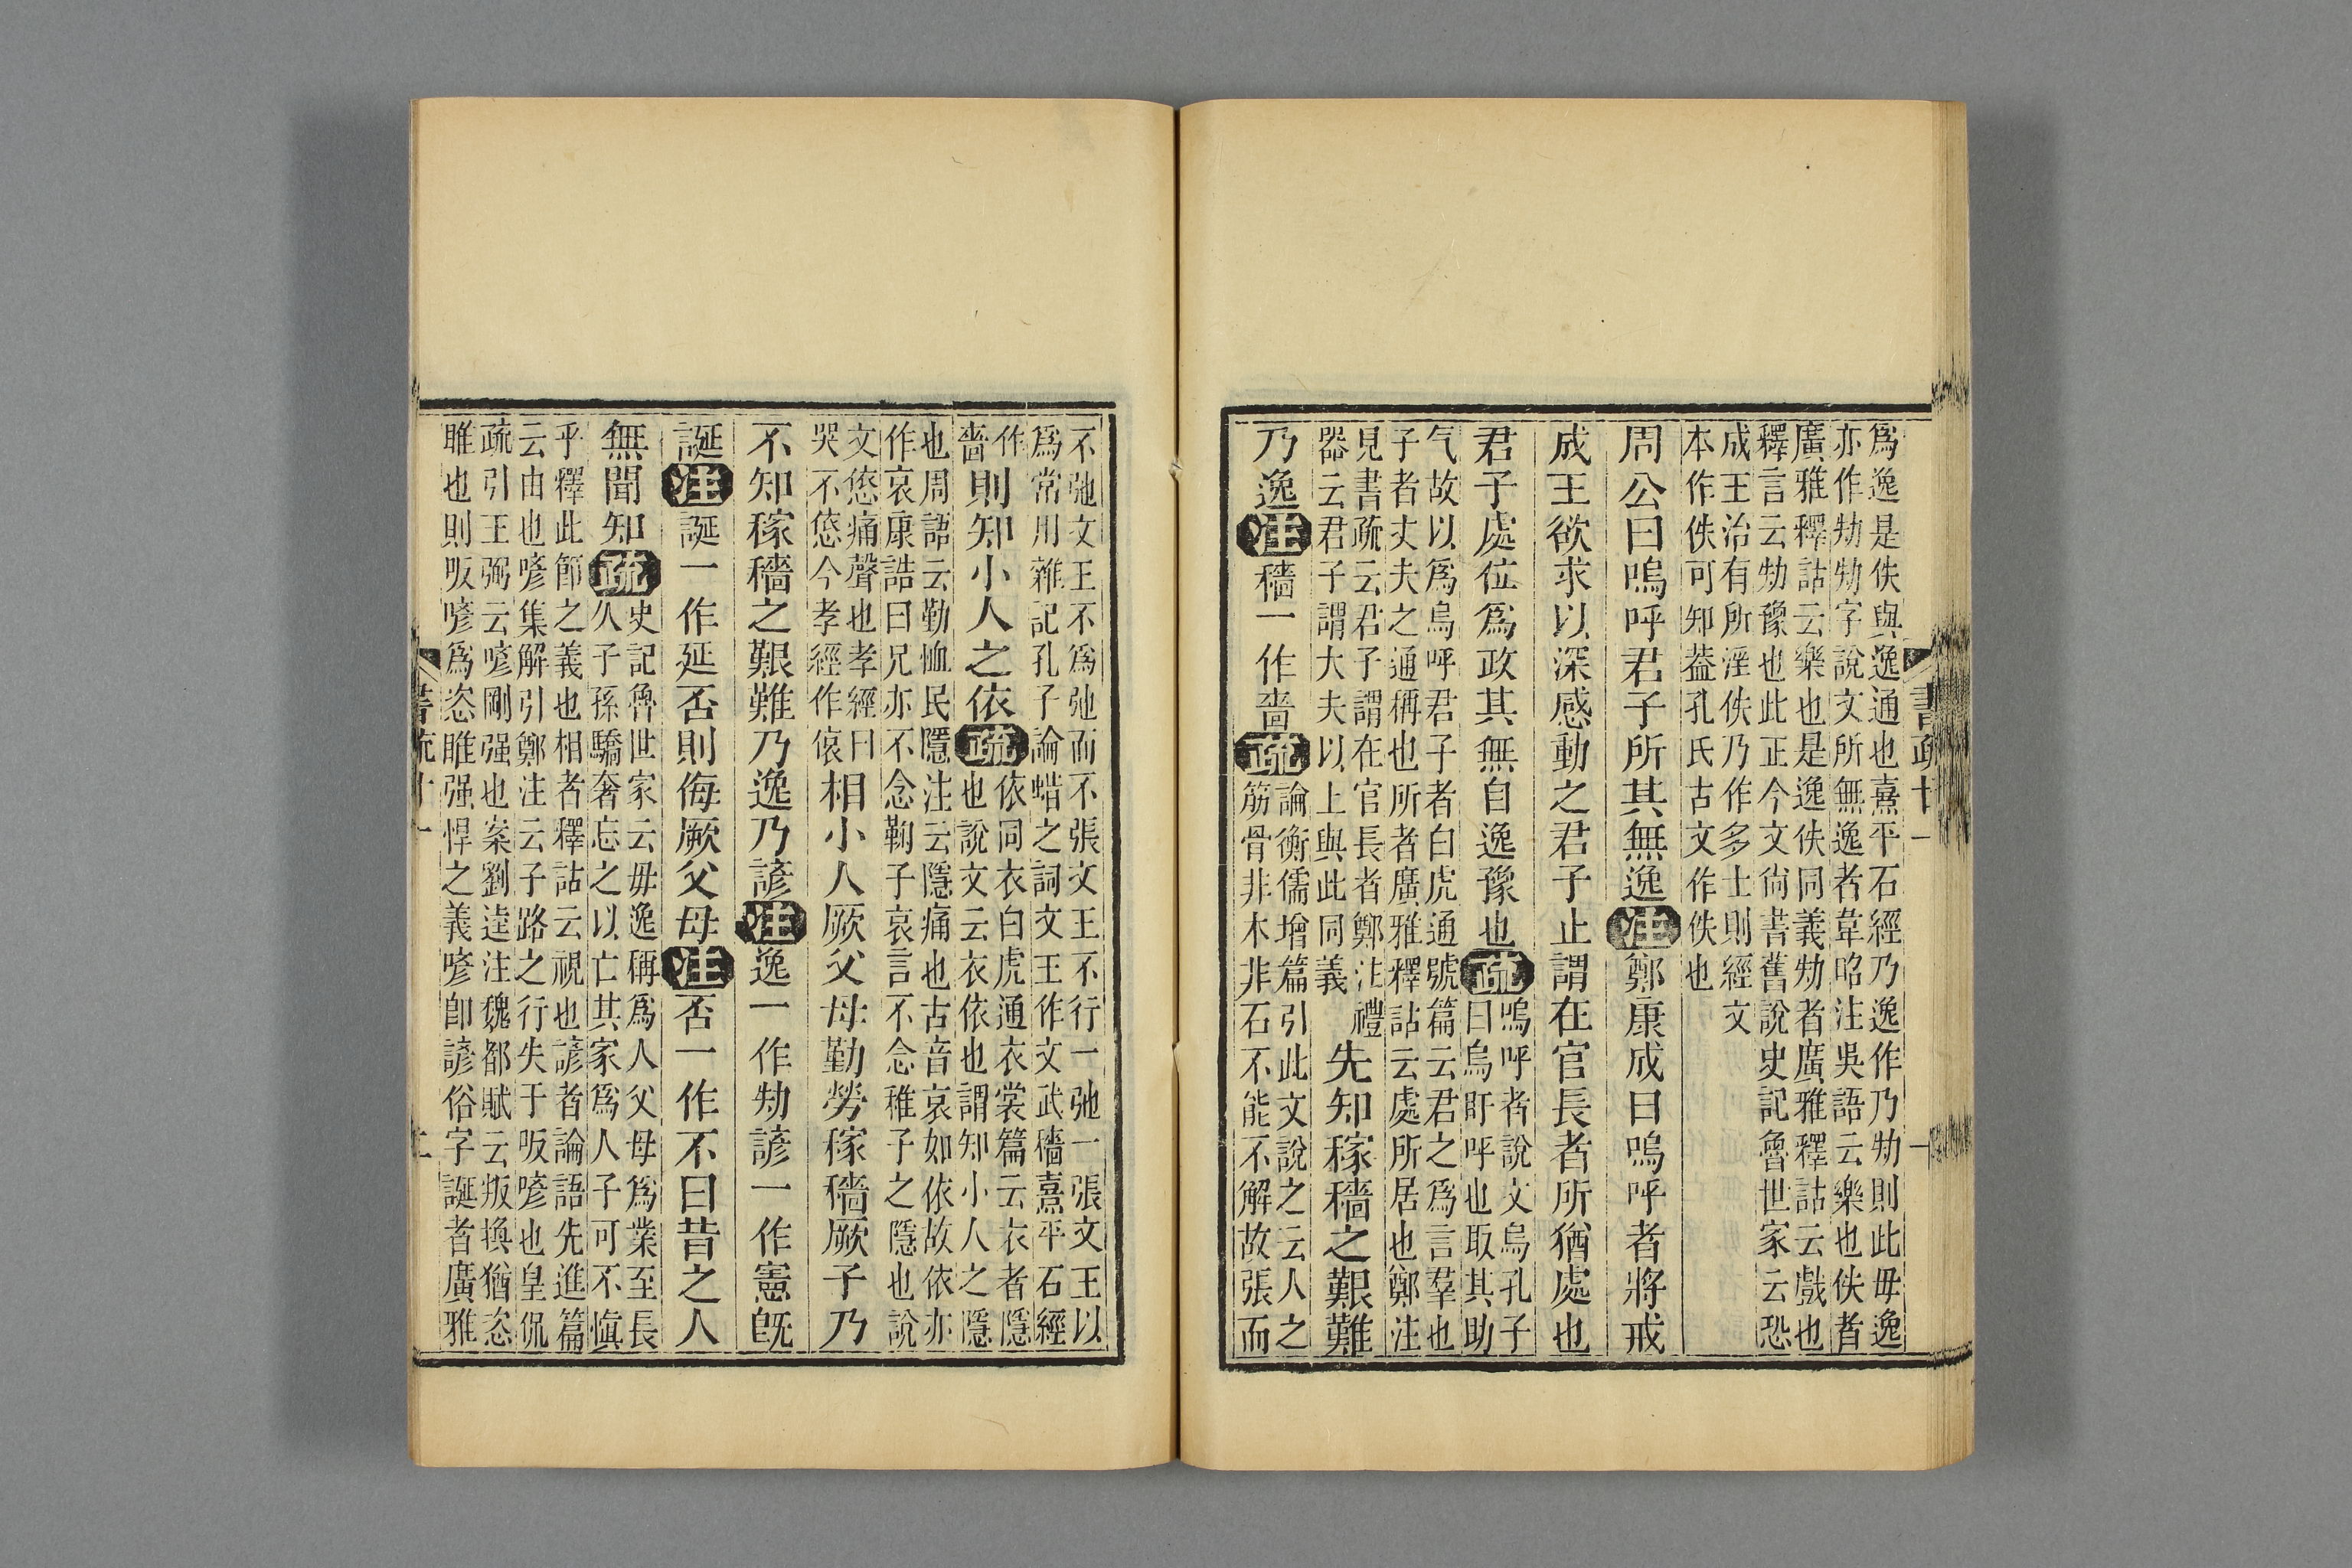 爲逸是佚與逸通也熹平石經乃逸作乃劮則此毋逸
亦作劮劮字說文所無逸者韋昭注吳語云樂也佚者
廣雅釋詁云樂也是逸佚同義劮者廣雅釋詁云戲也
釋言云劮豫也此正今文尙書舊說史記魯世家云恐
成王治有所淫佚乃作多士則經文
本作佚可知葢孔氏古文作佚也
周公曰嗚呼君子所其無逸注鄭康成曰嗚呼者將戒
成王欲求以深感動之君子止謂在官長者所猶處也
君子處位爲政其無自逸豫也疏
嗚呼者說文烏孔子
曰烏盱呼也取其助
气故以爲烏呼君子者白虎通號篇云君之爲言羣也
子者丈夫之通稱也所者廣雅釋詁云處所居也鄭注
見書疏云君子謂在官長者鄭注禮
器云君子謂大夫以上與此同義
先知稼穡之艱難
乃逸注穡一作嗇疏
論衡儒增篇引此文說之云人之
筋骨非木非石不能不解故張而
不弛文王不爲弛而不張文王不行一弛一張文王以
爲常用雜記孔子論蜡之詞文王作文武穡熹平石經
作
嗇
則知小人之依疏
依同衣白虎通衣裳篇云衣者隱
也說文云衣依也謂知小人之隱
也周語云勤恤民隱注云隱痛也古音哀如依故依亦
作哀康誥曰兄亦不念鞠子哀言不念稚子之隱也說
文㥋痛聲也孝經曰
哭不㥋今孝經作偯
相小人厥父母勤勞稼穡厥子乃
不知稼穡之艱難乃逸乃諺注逸一作劮諺一作憲旣
誕注誕一作延否則侮厥父母注否一作不曰昔之人
無聞知疏
史記魯世家云毋逸稱爲人父母爲業至長
久子孫驕奢忘之以亡其家爲人子可不愼
乎釋此節之義也相者釋詁云視也諺者論語先進篇
云由也喭集解引鄭注云子路之行失于昄喭也皇侃
疏引王弼云喭剛强也案劉逵注魏都賦云叛換猶恣
睢也則昄喭爲恣睢强悍之義喭卽諺俗字誕者廣雅